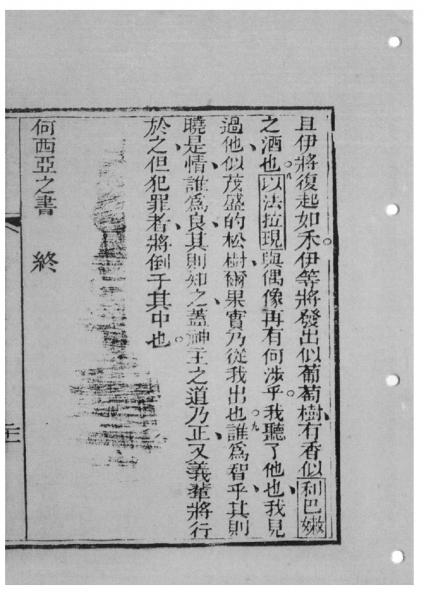 且伊將復起如禾伊等將發出似葡萄樹有香似利巴嫩
之酒也八以法拉現與偶像再有何涉乎我聽了他也我見
過他似茂盛的松樹爾果實乃從我出也九誰爲智乎其則
曉是情誰爲良其則知之蓋神主之道乃正又義輩將行
於之但犯罪者將倒于其中也
何西亞之書 終